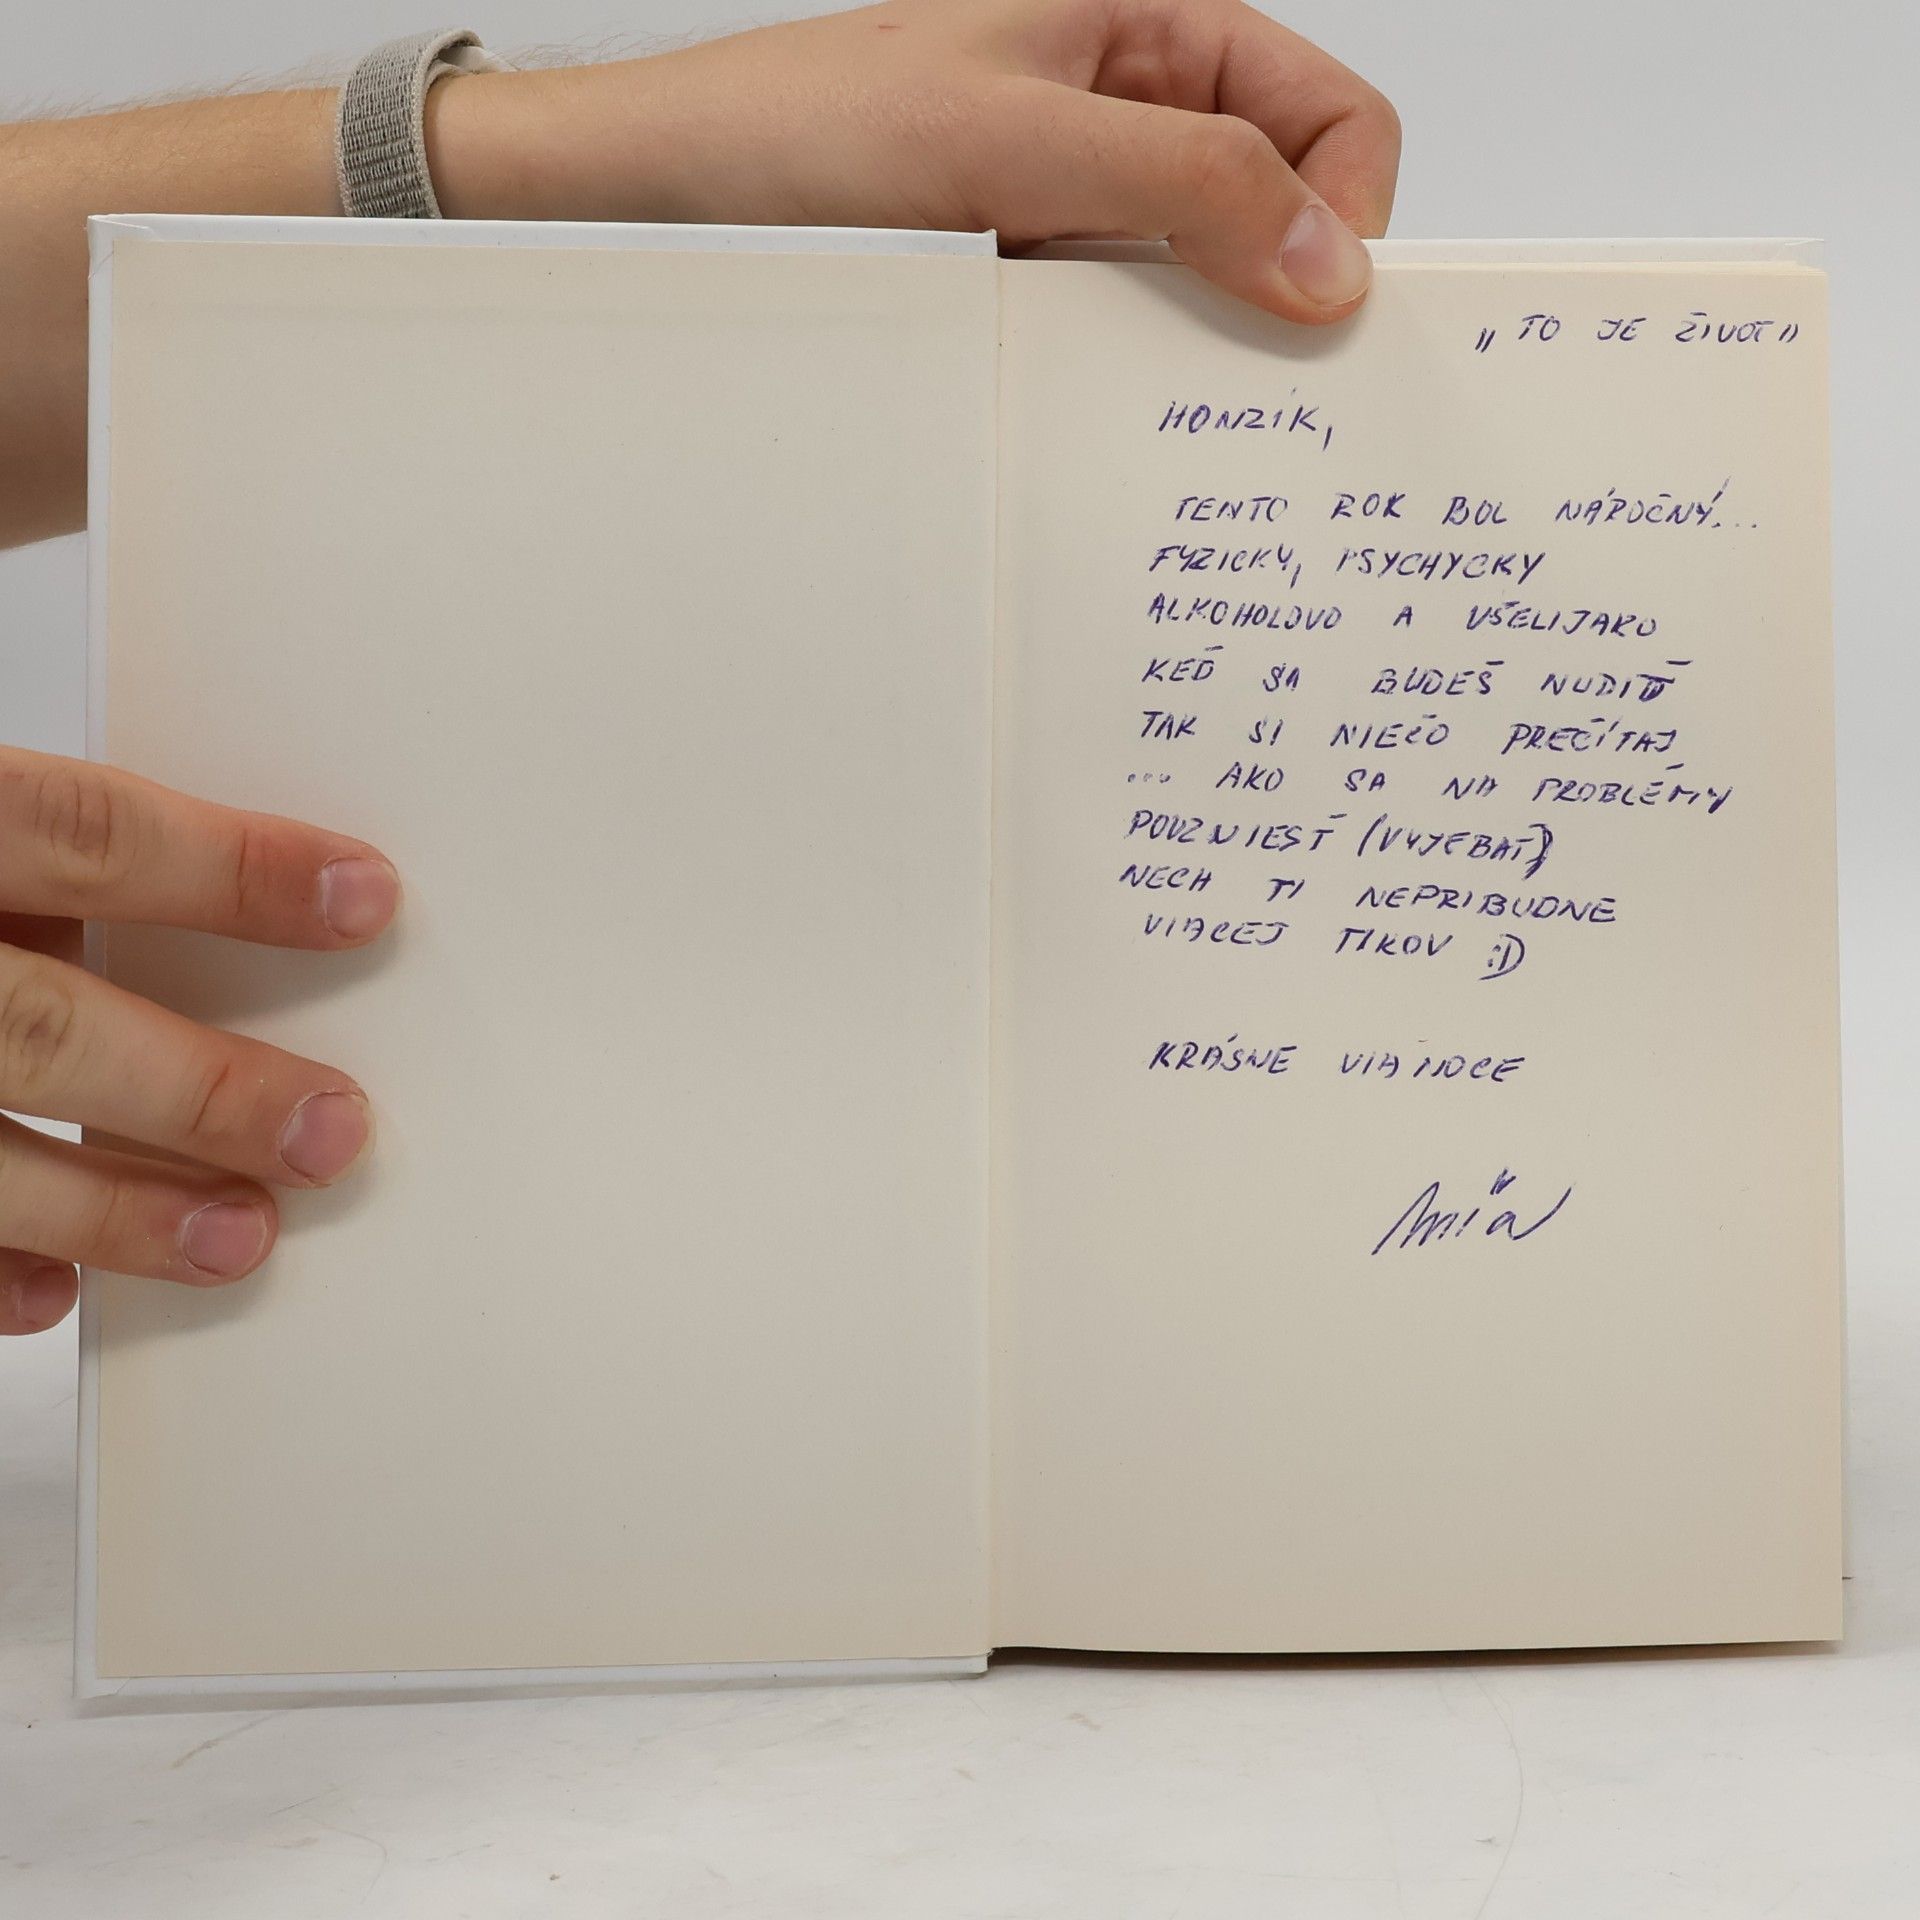 „ TO JE ŽIVOT "
HONZÍK,
TENTO ROK BOL NÁROČNÝ...
FYZICKY, PSYCHYCKY
ALKOHOLOVO A VŠELIJAKO
KEĎ SA BUDEŠ NUDIŤ
TAK SI NIEČO PREČÍTAJ
... AKO SA NA PROBLÉMY
POVZNIESŤ (VYJEBAŤ)
NECH TI NEPRIBUDNE
VIACEJ TIKOV :D
KRÁSNE VIANOCE